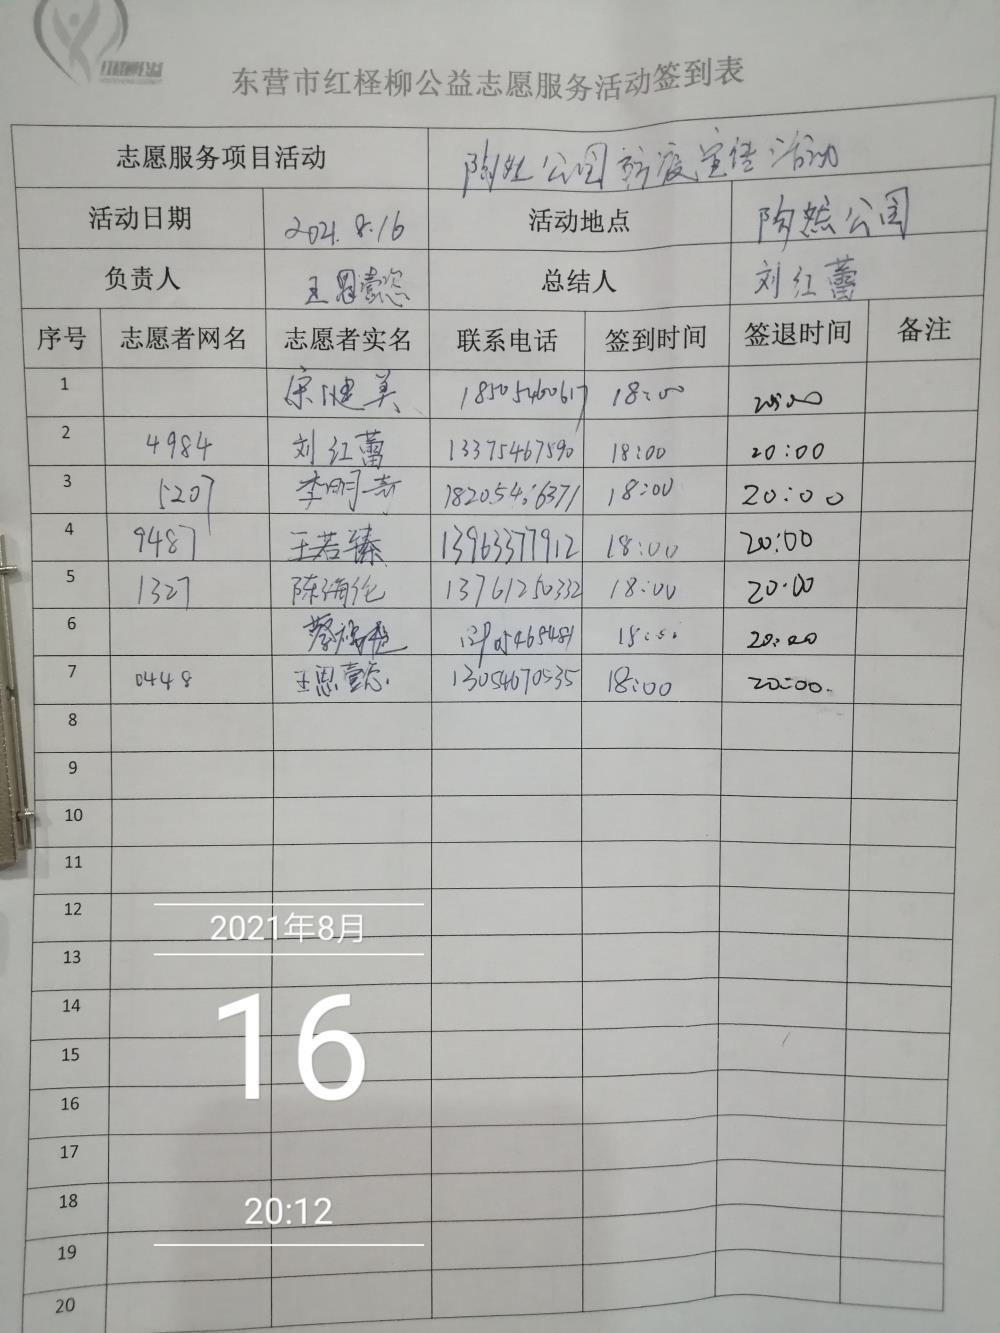 东营市红柽柳公益志愿服务活动签到表
志愿服务项目活动 陶然公园防疫宣传活动
活动日期 2021.8.16 活动地点 陶然公园
负责人 王思懿 总结人 刘红蕾
序号 志愿者网名 志愿者实名 联系电话 签到时间 签退时间 备注
1 宋健美 18505460617 18:00 20:00
2 4984 刘红蕾 13375467590 18:00 20:00
3 5207 李明奇 18205466371 18:00 20:00
4 9487 王若臻 13963377912 18:00 20:00
5 1327 陈海伦 13761250332 18:00 20:00
6 20:00
7 0448 13054670535 18:00 20:00.
8
9
10
11
12
2021年8月
13
14
16
15
16
17
18
20:12
19
20